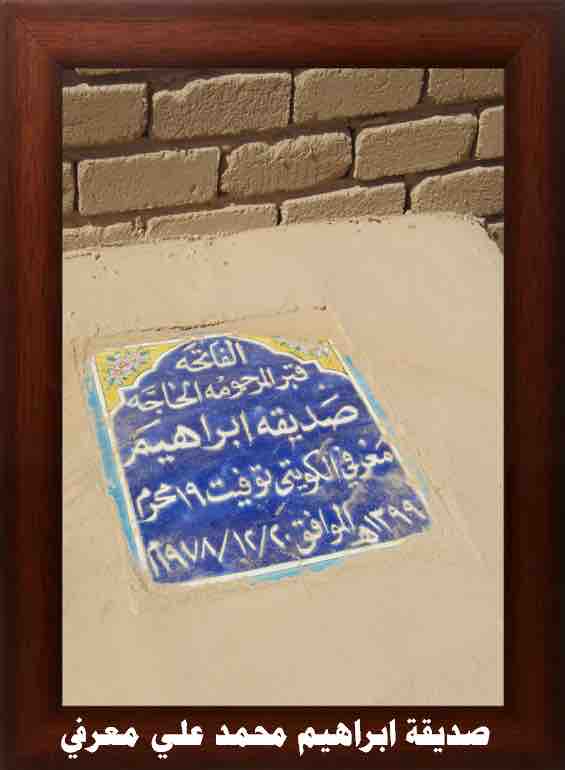 الفاتحه
قبر المرحومه الحاجه
صديقه إبراهيم
معرفي الكويتي توفيت ١٩ محرم
١٣٩٩هـ الموافق ٢٠/١٢/١٩٧٨م
صديقة ابراهيم محمد علي معرفي